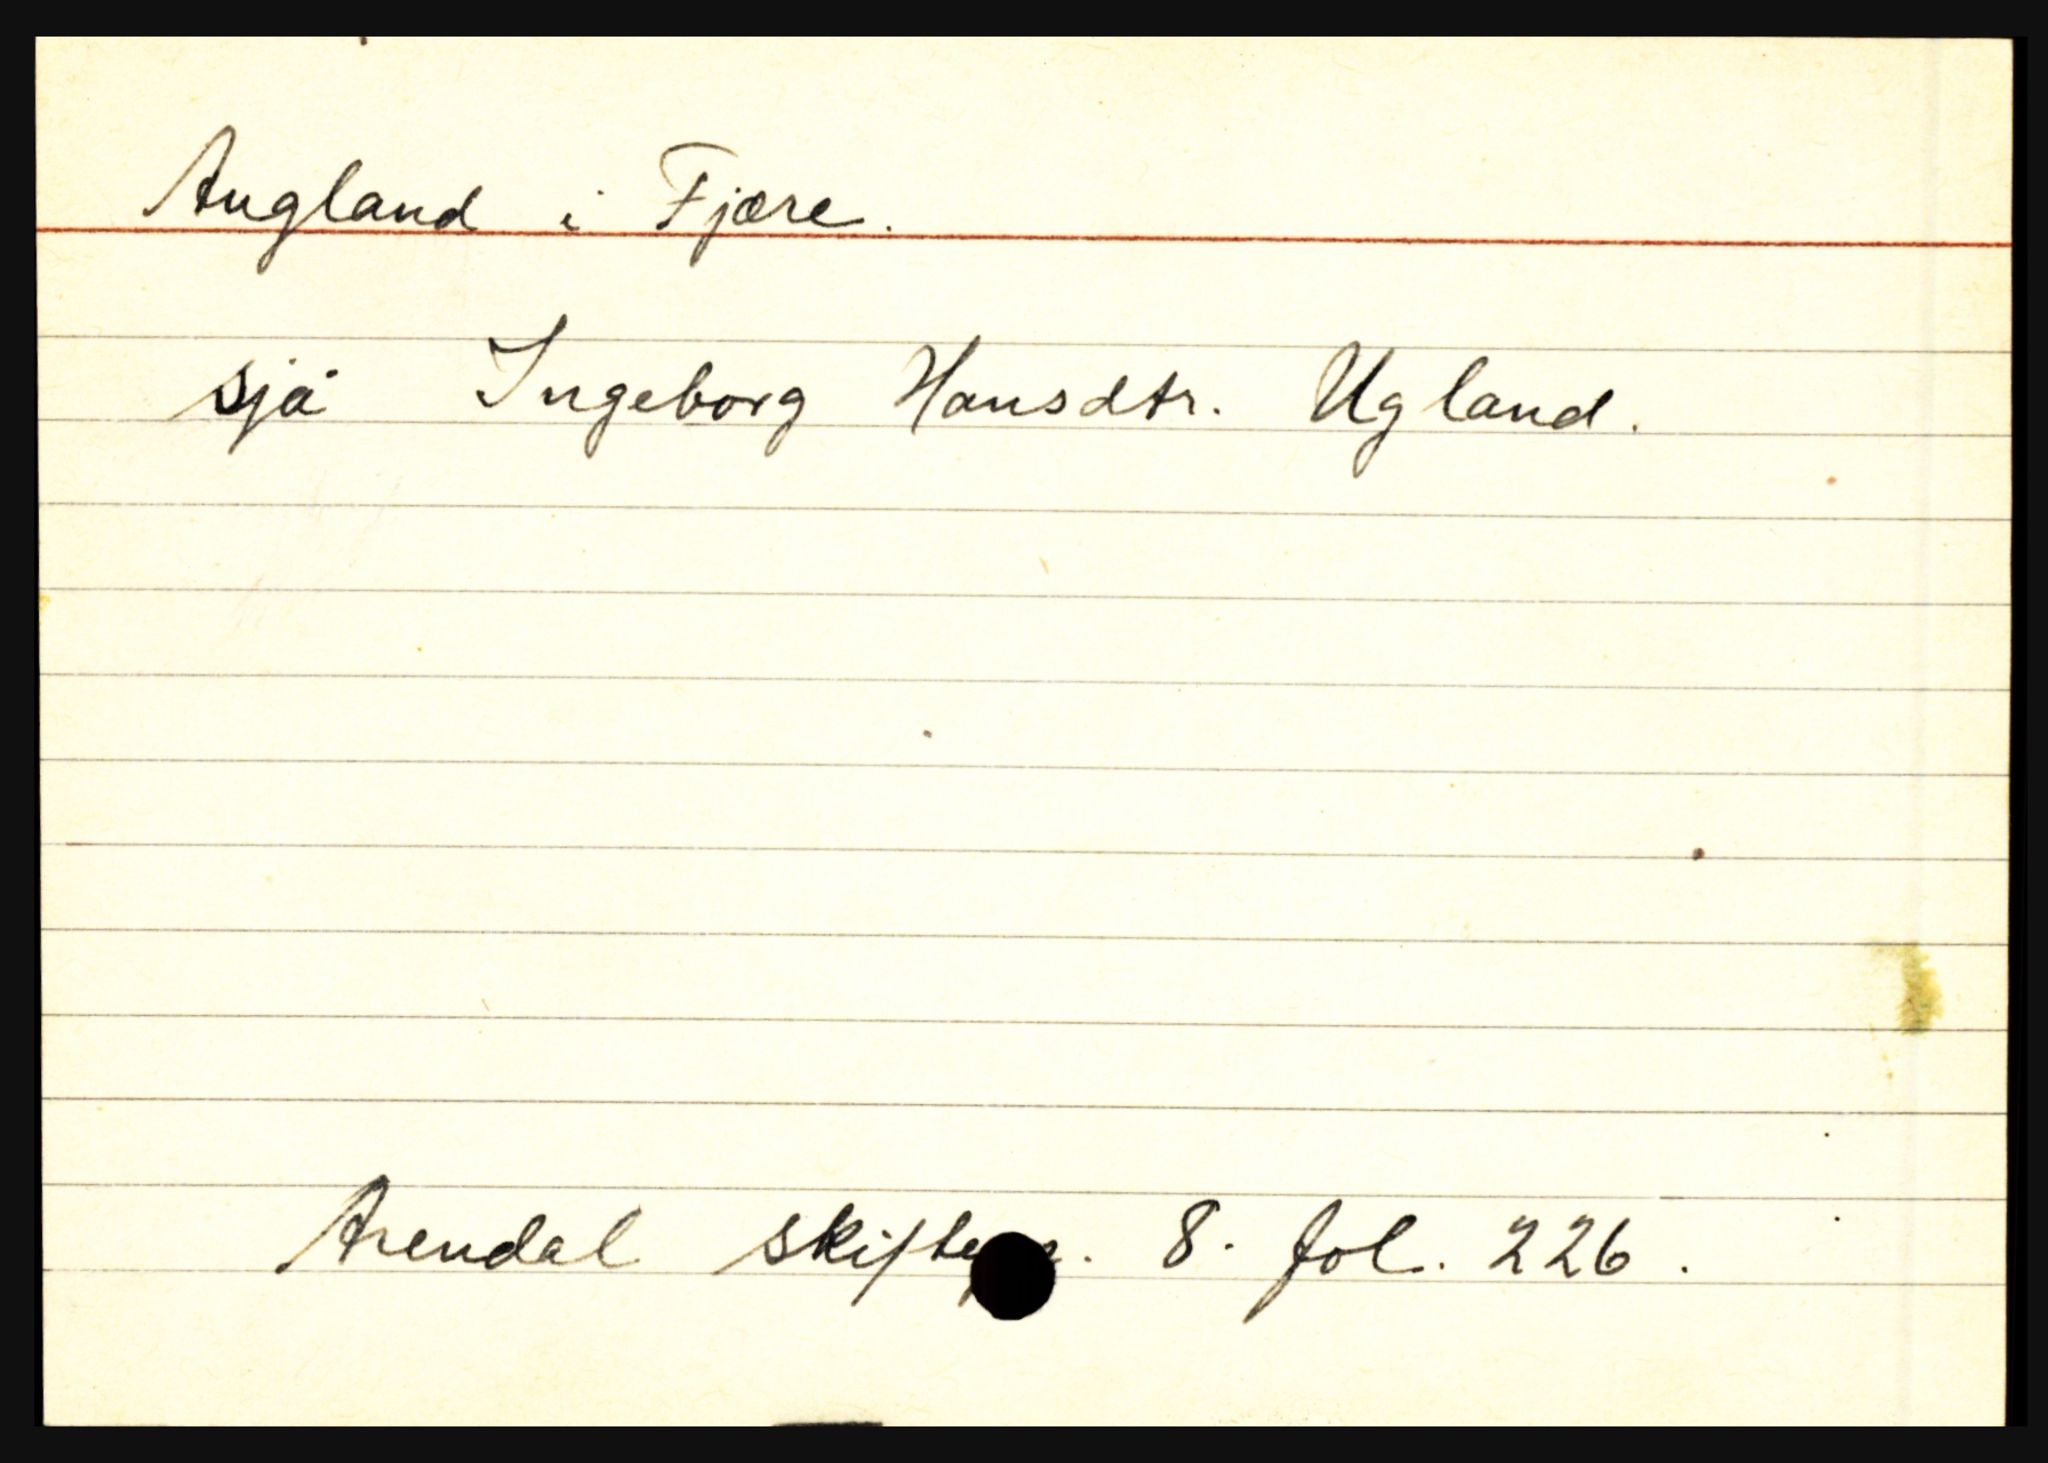 Augland i Fjære.
sjå Ingeborg Hansdtr. Ugland.
Arendal 8. fol. 226.